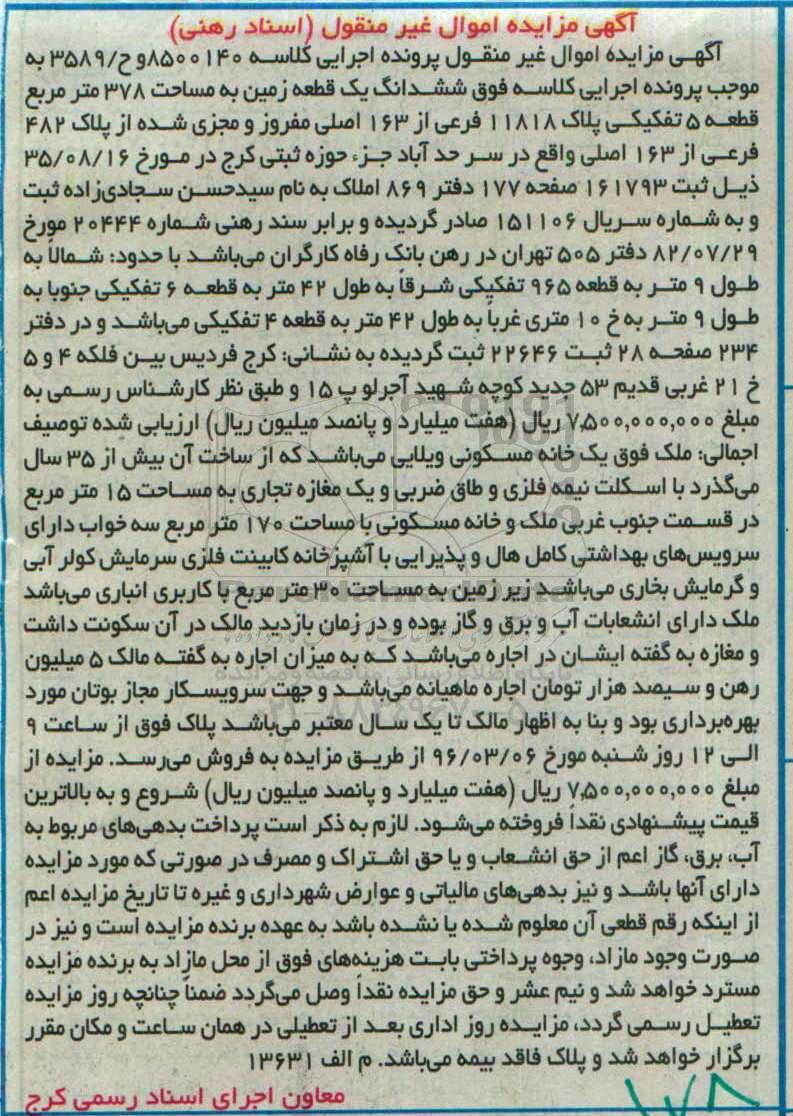 آگهی مزایده اموال غیر منقول (اسناد رهنی)
آگهی مزایده اموال غیر منقول پرونده اجرایی کلاسه ۸۵۰۰۱۴۰و ح/۳۵۸۹ به
موجب پرونده اجرایی کلاسه فوق ششدانگ یک قطعه زمین به مساحت ۳۷۸ متر مربع
قطعه ۵ تفکیکی پلاک ۱۱۸۱۸ فرعی از ۱۶۳ اصلی مفروز و مجزی شده از پلاک ۴۸۲
فرعی از ۱۶۳ اصلی واقع در سر حد آباد جزء حوزه ثبتی کرج در مورخ ۳۵/۰۸/۱۶
ذیل ثبت ۱۶۱۷۹۳ صفحه ۱۷۷ دفتر ۸۶۹ املاک به نام سیدحسن سجادی‌زاده ثبت
و به شماره سریال ۱۵۱۱۰۶ صادر گردیده و برابر سند رهنی شماره ۲۰۴۴۴ مورخ
۸۲/۰۷/۲۹ دفتر ۵۰۵ تهران در رهن بانک رفاه کارگران می‌باشد با حدود: شمالاً به
طول ۹ متر به قطعه ۹۶۵ تفکیکی شرقاً به طول ۴۲ متر به قطعه ۶ تفکیکی جنوبا به
طول ۹ متر به خ ۱۰ متری غرباً به طول ۴۲ متر به قطعه ۴ تفکیکی می‌باشد و در دفتر
۲۳۴ صفحه ۲۸ ثبت ۲۲۶۴۶ ثبت گردیده به نشانی: کرج فردیس بین فلکه ۴ و ۵
خ ۲۱ غربی قدیم ۵۳ جدید کوچه شهید آجرلو پ ۱۵ و طبق نظر کارشناس رسمی به
مبلغ ۷,۵۰۰,۰۰۰,۰۰۰ ریال (هفت میلیارد و پانصد میلیون ریال) ارزیابی شده توصیف
اجمالی: ملک فوق یک خانه مسکونی ویلایی می‌باشد که از ساخت آن بیش از ۳۵ سال
می‌گذرد با اسکلت نیمه فلزی و طاق ضربی و یک مغازه تجاری به مساحت ۱۵ متر مربع
در قسمت جنوب غربی ملک و خانه مسکونی با مساحت ۱۷۰ متر مربع سه خواب دارای
سرویس‌های بهداشتی کامل هال و پذیرایی با آشپزخانه کابینت فلزی سرمایش کولر آبی
و گرمایش بخاری می‌باشد زیر زمین به مساحت ۳۰ متر مربع با کاربری انباری می‌باشد
ملک دارای انشعابات آب و برق و گاز بوده و در زمان بازدید مالک در آن سکونت داشت
و مغازه به گفته ایشان در اجاره می‌باشد که به میزان اجاره به گفته مالک ۵ میلیون
رهن و سیصد هزار تومان اجاره ماهیانه می‌باشد و جهت سرویسکار مجاز بوتان مورد
بهره‌برداری بود و بنا به اظهار مالک تا یک سال معتبر می‌باشد پلاک فوق از ساعت ۹
الی ۱۲ روز شنبه مورخ ۹۶/۰۳/۰۶ از طریق مزایده به فروش می‌رسد. مزایده از
مبلغ ۷,۵۰۰,۰۰۰,۰۰۰ ریال (هفت میلیارد و پانصد میلیون ریال) شروع و به بالاترین
قیمت پیشنهادی نقداً فروخته می‌شود. لازم به ذکر است پرداخت بدهی‌های مربوط به
آب، برق، گاز اعم از حق انشعاب و یا حق اشتراک و مصرف در صورتی که مورد مزایده
دارای آنها باشد و نیز بدهی‌های مالیاتی و عوارض شهرداری و غیره تا تاریخ مزایده اعم
از اینکه رقم قطعی آن معلوم شده یا نشده باشد به عهده برنده مزایده است و نیز در
صورت وجود مازاد، وجوه پرداختی بابت هزینه‌های فوق از محل مازاد به برنده مزایده
مسترد خواهد شد و نیم عشر و حق مزایده نقداً وصل می‌گردد ضمناً چنانچه روز مزایده
تعطیل رسمی گردد، مزایده روز اداری بعد از تعطیلی در همان ساعت و مکان مقرر
برگزار خواهد شد و پلاک فاقد بیمه می‌باشد. م الف ۱۳۶۳۱
معاون اجرای اسناد رسمی کرج